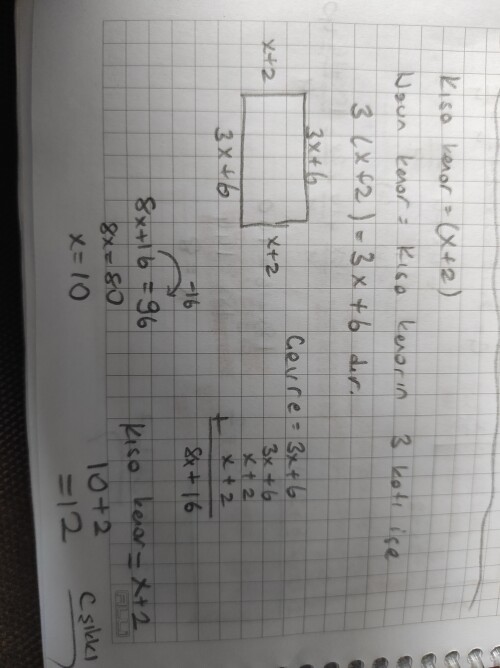 Kısa kenar = (x+2)
Uzun kenar = Kısa kenarın 3 katı ise
3 (x+2) = 3x+6 dır.
3x+6
x+2
x+2
3x+6
Çevre = 3x+6
3x+6
x+2
+ x+2
8x+16
-16
8x+16 = 96
8x = 80
x = 10
Kısa kenar = x+2
10+2
= 12
C şıkkı